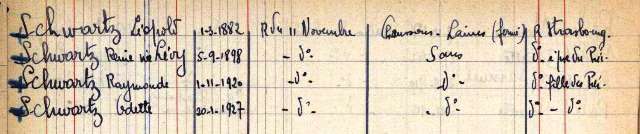 Schwartz Léopold 1-3-1882 R du 11 Novembre Chaussons-Laines (forni) R Strasbourg.
Schwartz Renée née Lévy 5-9-1898 - d° Sans d° épse du Pré-
Schwartz Raymonde 1-11-1920 - d° d° - d° fille du Pré-
Schwartz Odette 20-1-1927 - d° - d° d° - d°